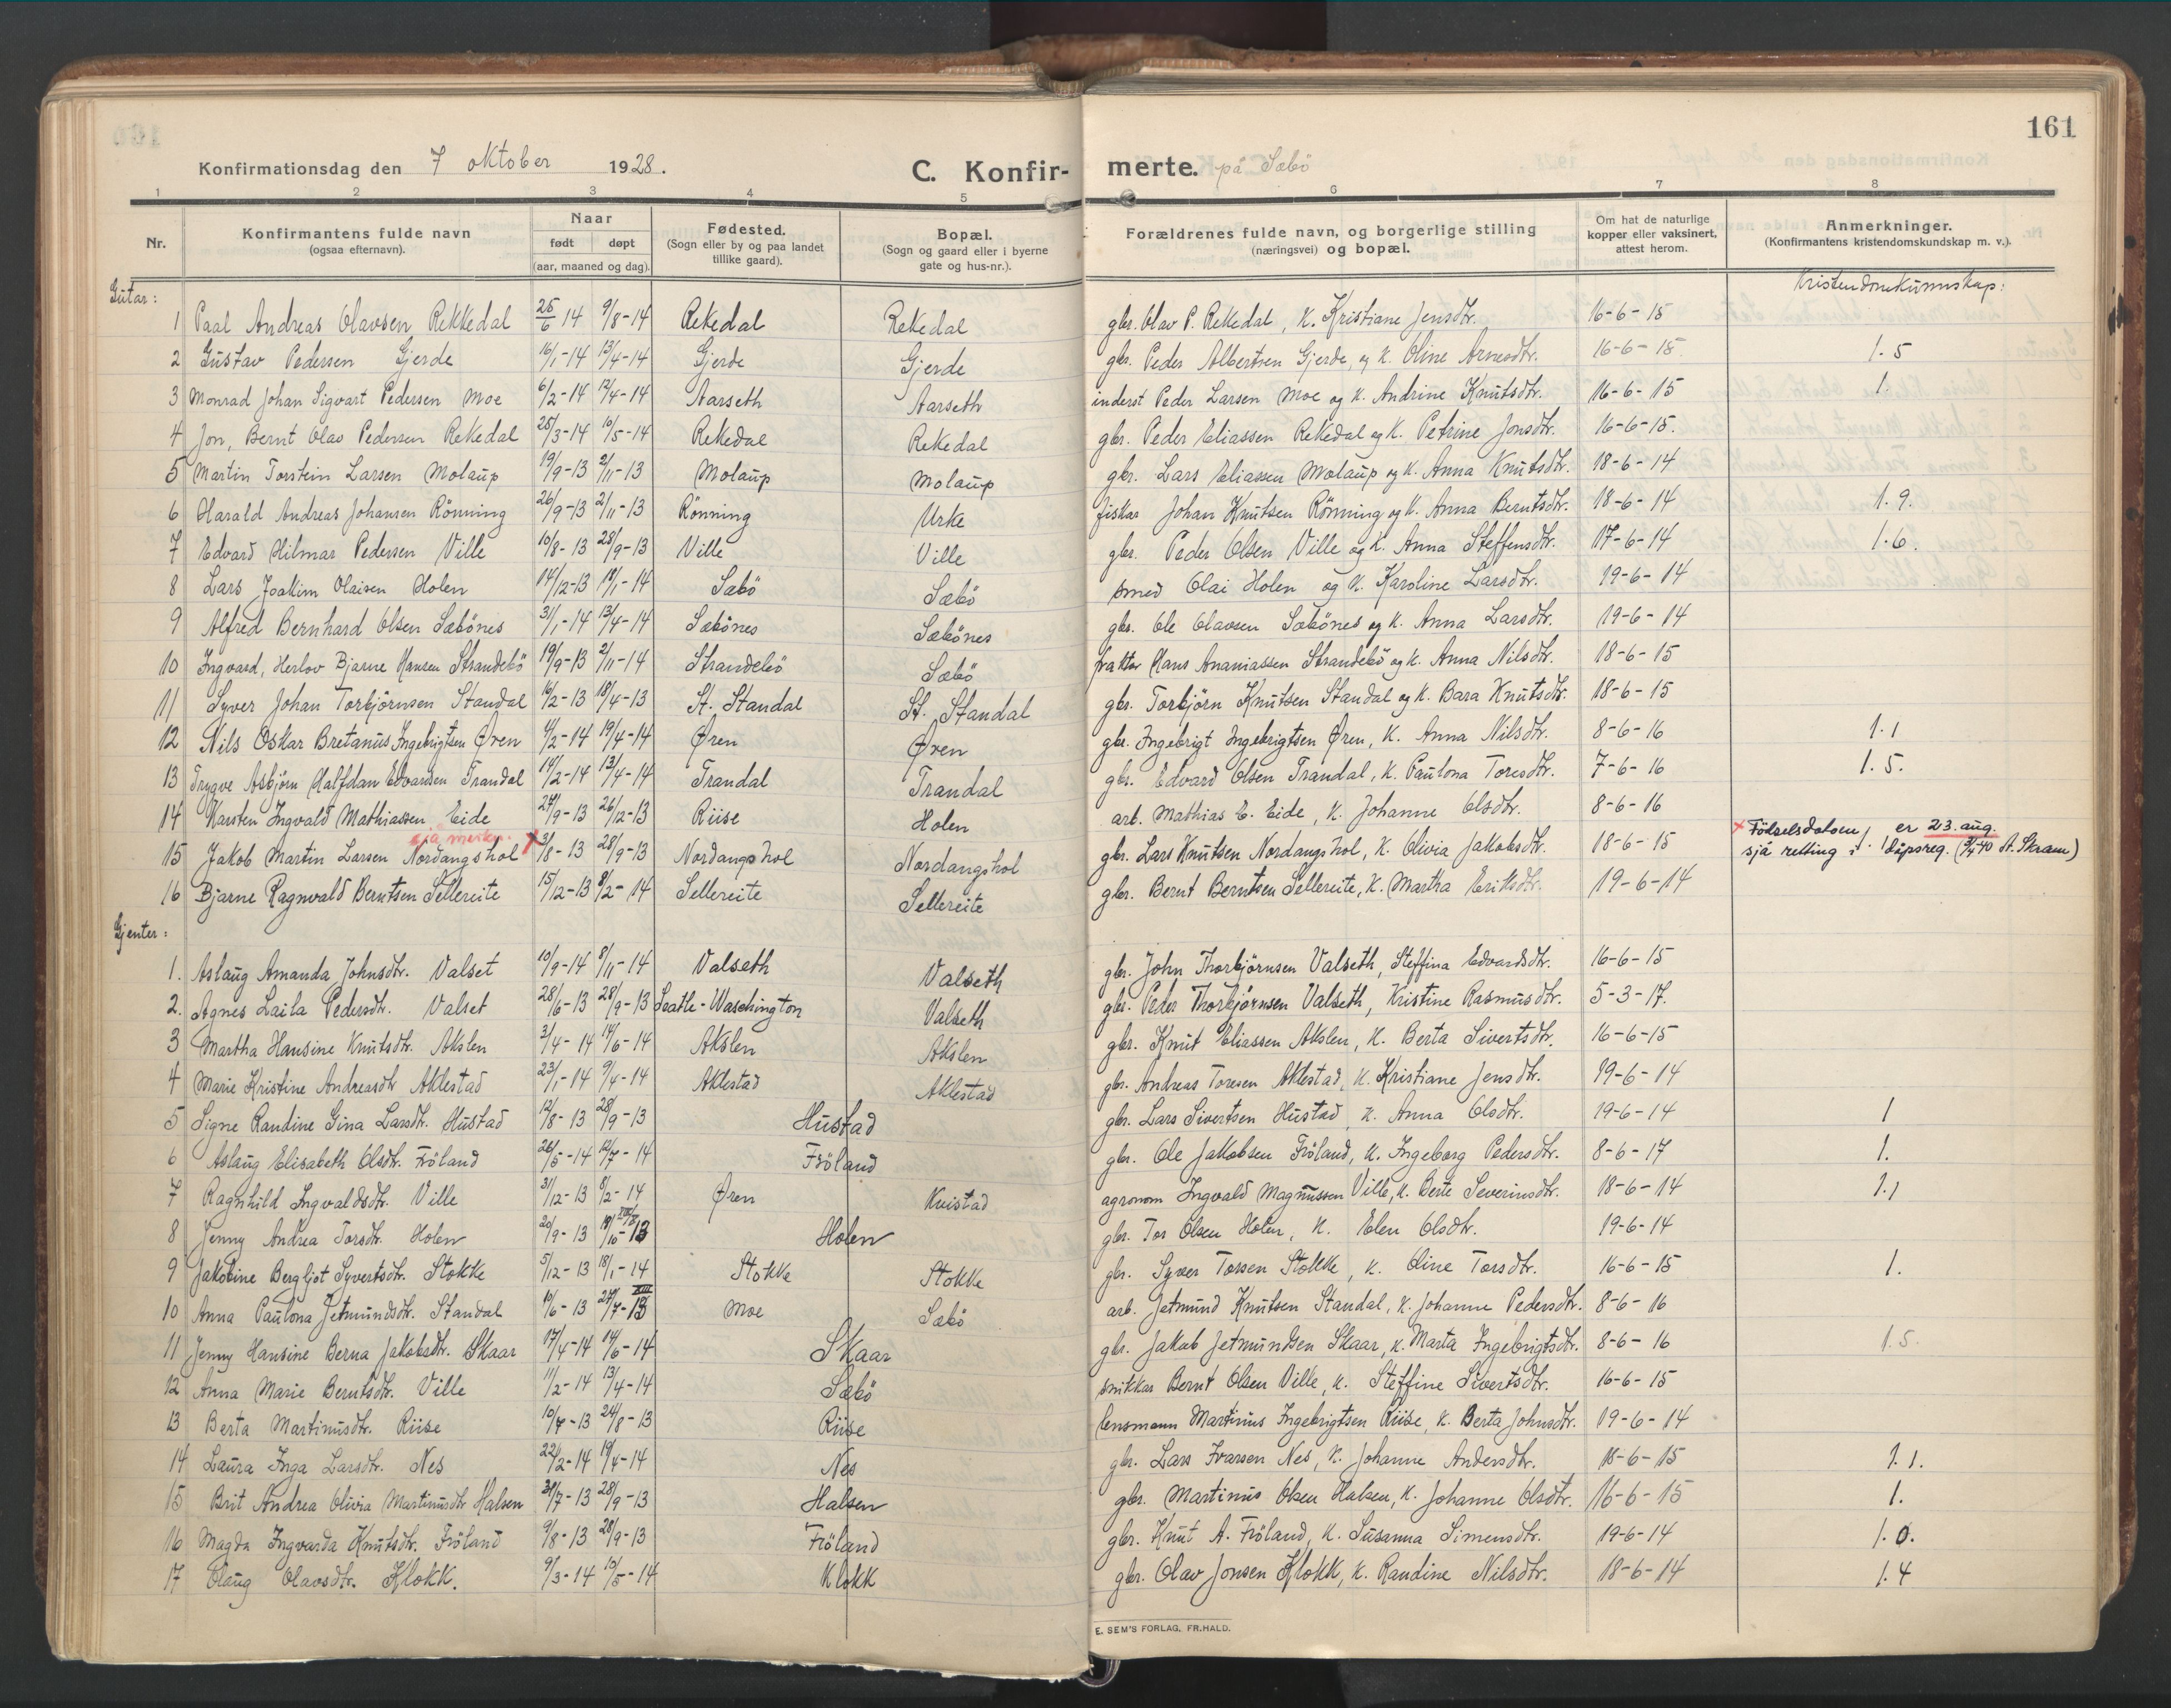 161
Konfirmationsdag den 7 oktober 1928. C. Konfir- merte. på Sæbö
1 2 3 4 5 6 7 8
Nr. Konfirmantens fulde navn (ogsaa efternavn). Naar født døpt (aar, maaned og dag). Fødested. (Sogn eller by og paa landet tillike gaard). Bopæl. (Sogn og gaard eller i byerne gate og hus-nr.). Forældrenes fulde navn, og borgerlige stilling (næringsvei) og bopæl. Om hat de naturlige kopper eller vaksinert, attest herom. Anmerkninger. (Konfirmantens kristendomskundskap m. v.).
Gutar: Kristendomskunnskap:
1 Paal Andreas Olavsen Rekkedal 25/6 14 9/8-14 Rekedal Rekedal gbr. Olav P. Rekedal, K. Kristiane Jensdtr. 16-6-15
2 Gustav Pedersen Gjerde 16/1-14 13/4-14 Gjerde Gjerde gbr. Peder Albertsen Gjerde, og K. Oline Arnesdtr. 16-6-15 1.5
3 Monrad Johan Sigvart Pedersen Moe 6/2-14 12/4-14 Aarseth Aarseth inderst Peder Larsen Moe og K. Andrine Knutsdtr. 16-6-15 1.
4 Jon, Bernt Olav Pedersen Rekedal 28/3-14 10/5-14 Rekedal Rekedal gbr. Peder Eliassen Rekedal og K. Petrine Jonsdtr. 16-6-15.
5 Martin Torstein Larsen Molaup 19/9-13 2/11-13 Molaup Molaup gbr. Lars Eliassen Molaup og K. Anna Knutsdtr. 18-6-14
6 Harald Andreas Johansen Rönning 26/9-13 2/11-13 Rönning Urke fiskar Johan Knutsen Rönning og K. Anna Berntsdtr. 18-6-14 1.9.
7 Edvard Hilmar Pedersen Ville 10/8-13 28/9-13 Ville Ville gbr. Peder Olsen Ville og K. Anna Steffensdtr. 17-6-14 1.6.
8 Lars Joakim Olaisen Holen 14/12-13 18/1-14 Sæbö Sæbö smed Olai Holen og K. Karoline Larsdtr. 19-6-14
9 Alfred Bernhard Olsen Sæbönes 31/1-14 13/4-14 Sæbönes Sæbönes gbr. Ole Olavsen Sæbönes og K. Anna Larsdtr. 19-6-14
10 Ingvard, Herlov Bjarne Hansen Strandebö 19/9-13 2/11-14 Strandebö Sæbö Hans Ananiassen Strandebö og K. Anna Nilsdtr. 18-6-15
11 Syver Johan Torbjörnsen Standal 16/2-13 18/4-13 St. Standal St. Standal gbr. Torbjörn Knutsen Standal og K. Bara Knutsdtr. 18-6-15
12 Nils Oskar Bretanus Ingebrigtsen Øren 4/2-14 19/4-14 Øren Øren gbr. Ingebrigt Ingebrigtsen Øren, K. Anna Nilsdtr. 8-6-16 1.1
13 Trygve Asbjörn Halfdan Edvardsen Trandal 14/2-14 13/4-14 Trandal Trandal gbr. Edvard Olsen Trandal, K. Paulona Toresdtr. 7-6-16 1.5.
14 Karsten Ingvald Mathiassen Eide 27/9-13 26/12-13 Riise Holen arb. Mathias E. Eide, K. Johanne Olsdtr. 8-6-16
sjå merkn. x
15 Jakob Martin Larsen Nordangshol 3/8-13 28/9-13 Nordangshol Nordangshol gbr. Lars Knutsen Nordangshol, K. Olivia Jakobsdtr. 18-6-15 x Födselsdatoen er 23. aug.
sjå retting i dåpsreg. (3/4 40 A. Skram)
16 Bjarne Ragnvald Berntsen Sellereite 15/12-13 8/2-14 Sellereite Sellereite gbr. Bernt Berntsen Sellereite, K. Martha Eriksdtr. 19-6-14
Gjenter:
1. Aslaug Amanda Johnsdtr. Valset 10/9-14 8/11-14 Valseth Valseth gbr. John Thorbjörnsen Valseth, Steffina Edvardsdtr. 16-6-15
2. Agnes Laila Pedersdtr. Valset 28/6-13 28/9-13 Seatle-Waschington Valseth gbr. Peder Thorbjörnsen Valseth, Kristine Rasmusdtr. 5-3-17.
3 Martha Hansine Knutsdtr. Akslen 3/4-14 14/6-14 Akslen Akslen gbr. Knut Eliassen Akslen, K. Berta Sivertsdtr. 16-6-15
4 Marie Kristine Andreasdtr Aklestad 23/1-14 9/4-14 Aklestad Aklestad gbr. Andreas Toresen Aklestad, K. Kristiane Jensdtr. 19-6-14
5 Signe Randine Gina Larsdtr. Hustad 12/8-13 28/9-13 Hustad gbr. Lars Sivertsen Hustad, K. Anna Olsdtr. 19-6-14 1
6 Aslaug Elisabeth Olsdtr. Fröland 26/5-14 12/7-14 Fröland gbr. Ole Jakobsen Fröland, K. Ingeborg Pedersdtr. 8-6-17 1.
7 Ragnhild Ingvaldsdtr. Ville 31/12-13 8/2-14 Øren Kvistad agronom Ingvald Magnussen Ville, K. Berte Severinsdtr. 18-6-14 1.1
8 Jenny Andrea Torsdtr. Holen 20/9-13 19/10-13 Holen gbr. Tor Olsen Holen, K. Elen Olsdtr. 19-6-14
9 Jakobine Bergljot Syvertsdtr. Stokke 5/12-13 18/1-14 Stokke Stokke gbr. Syver Torsen Stokke, K. Oline Torsdtr. 16-6-15 1.
10 Anna Paulona Jetmundsdtr. Standal 10/6-13 27/7-13 Moe Sæbö arb. Jetmund Knutsen Standal, K. Johanne Pedersdtr. 8-6-16
11 Jenny Hansine Berna Jakobsdtr. Skaar 17/4-14 14/6-14 Skaar gbr. Jakob Jetmundsen Skaar, K. Marta Ingebrigtsdtr. 8-6-16 1.5.
12 Anna Marie Berntsdtr. Ville 11/2-14 13/4-14 Sæbö snikkar Bernt Olsen Ville, K. Steffine Sivertsdtr. 16-6-15
13 Berta Martinusdtr. Riise 10/7-13 24/8-13 Riise lensmann Martinus Ingebrigtsen Riise, K. Berta Johnsdtr. 19-6-14
14 Laura Inga Larsdtr. Nes 22/2-14 19/4-14 Nes gbr. Lars Ivarsen Nes, K. Johanne Andersdtr. 18-6-15 1.1.
15 Brit Andrea Olivia Martinusdtr Halsen 31/7-13 28/9-13 Halsen gbr. Martinus Olsen Halsen, K. Johanne Olsdtr. 16-6-15 1.
16 Magda Ingvarda Knutsdtr. Fröland 9/8-13 28/9-13 Fröland gbr. Knut A. Fröland, K. Susanna Simensdtr. 19-6-14 1.0.
17 Olaug Olavsdtr. Klokk. 9/3-14 10/5-14 Klokk gbr. Olav Jonsen Klokk, K. Randine Nilsdtr. 18-6-14 1.4
E. SEM'S FORLAG, FR.HALD.